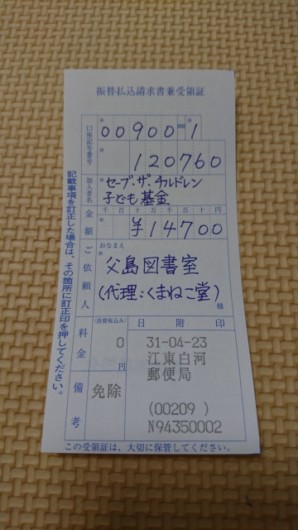 振替払込請求書兼受領証
口座記号番号
00900 1
120760
加入者名
セーブ・ザ・チルドレン
子ども基金
金額
千 百 十 万 千 百 十 円
¥14700
ご依頼人
おなまえ
父島図書室
(代理:くまねこ堂)
様
料金
(消費税込み)
0
円
備考
免除
日附印
31-04-23
江東白河
郵便局
(00209 )
N94350002
記載事項を訂正した場合は、その箇所に訂正印を押してください。
この受領証は、大切に保管してください。